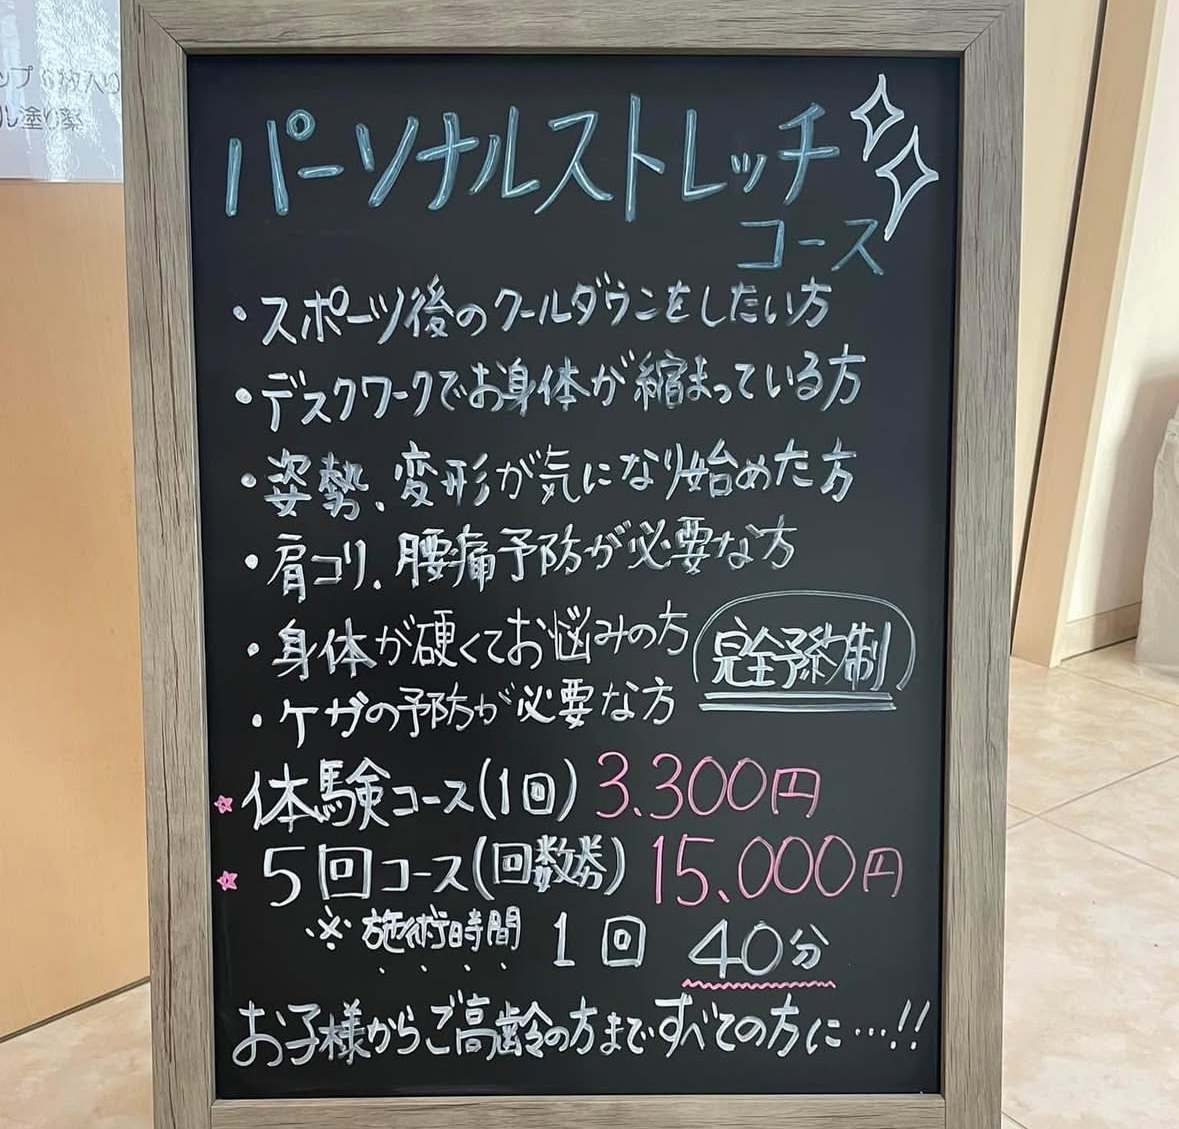 ップ6枚入り
ル塗り薬
パーソナルストレッチ
コース
・スポーツ後のクールダウンをしたい方
・デスクワークでお身体が縮まっている方
・姿勢、変形が気になり始めた方
・肩コリ、腰痛予防が必要な方
・身体が硬くてお悩みの方
完全予約制
・ケガの予防が必要な方
☆体験コース(1回) 3.300円
☆5回コース(回数券) 15、000円
※施術時間 1回 40分
お子様からご高齢の方まですべての方に…!!